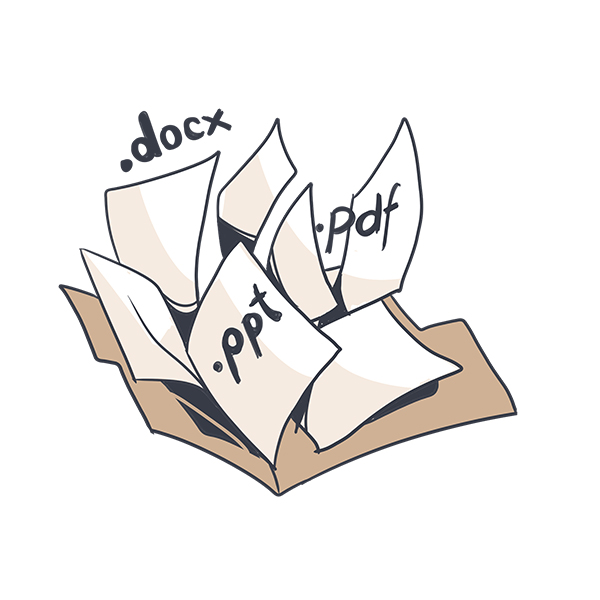 .docx
.pdf
.ppt